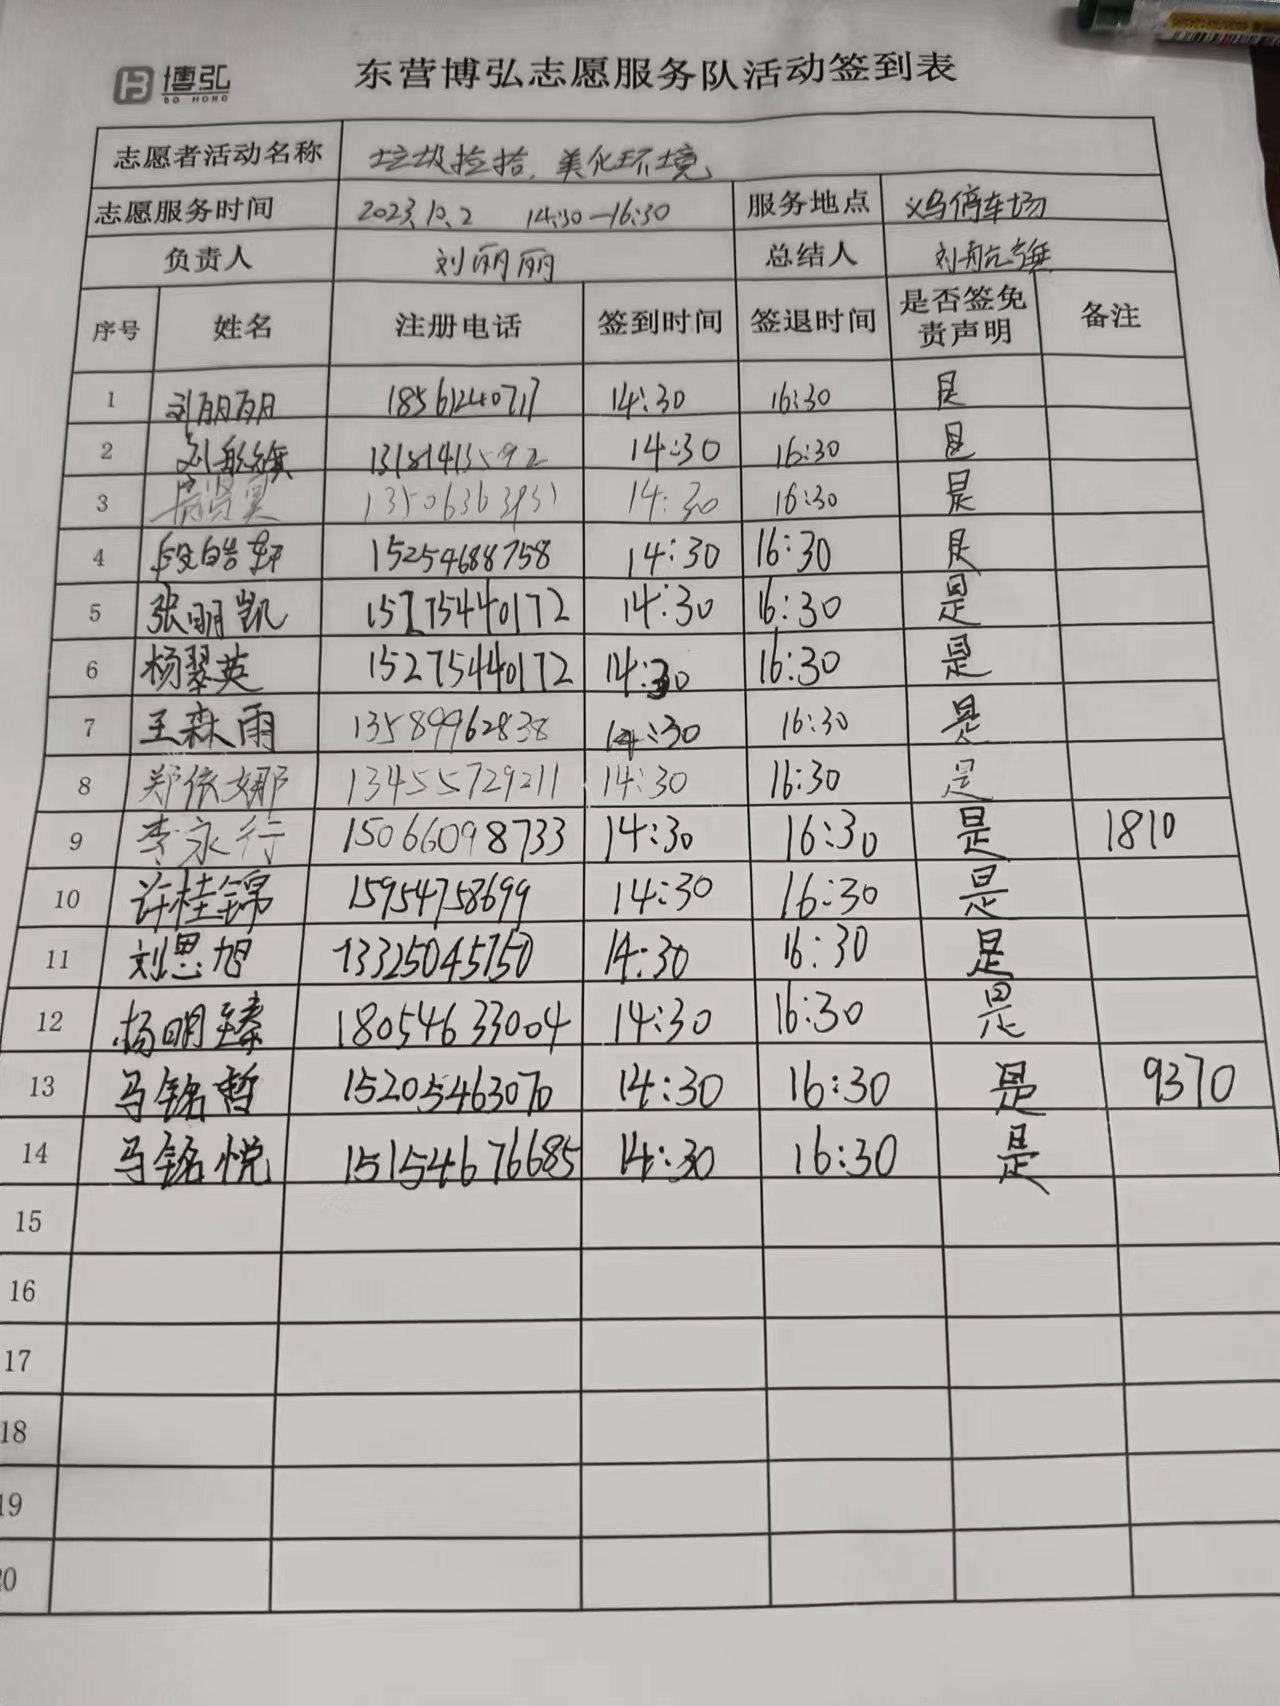 博弘
BO HONG
东营博弘志愿服务队活动签到表
志愿者活动名称 垃圾捡拾，美化环境
志愿服务时间 2023.10.2 14:30—16:30 服务地点 义乌停车场
负责人 刘丽丽 总结人 刘航
序号 姓名 注册电话 签到时间 签退时间 是否签免责声明 备注
1 刘丽丽 18561240717 14:30 16:30 是
2 刘航 13181413592 14:30 16:30 是
3 14:30 16:30 是
4 段皓轩 15254688758 14:30 16:30 是
5 张明凯 15275440172 14:30 16:30 是
6 杨翠英 15275440172 14:30 16:30 是
7 王森雨 13589962838 14:30 16:30 是
8 郑依娜 13455729211 14:30 16:30 是
9 李永行 15066098733 14:30 16:30 是 1810
10 许桂锦 15954758699 14:30 16:30 是
11 刘思旭 13325045750 14:30 16:30 是
12 杨明臻 18054633004 14:30 16:30 是
13 马铭哲 15205463070 14:30 16:30 是 9370
14 马铭悦 15154676685 14:30 16:30 是
15
16
17
18
19
20